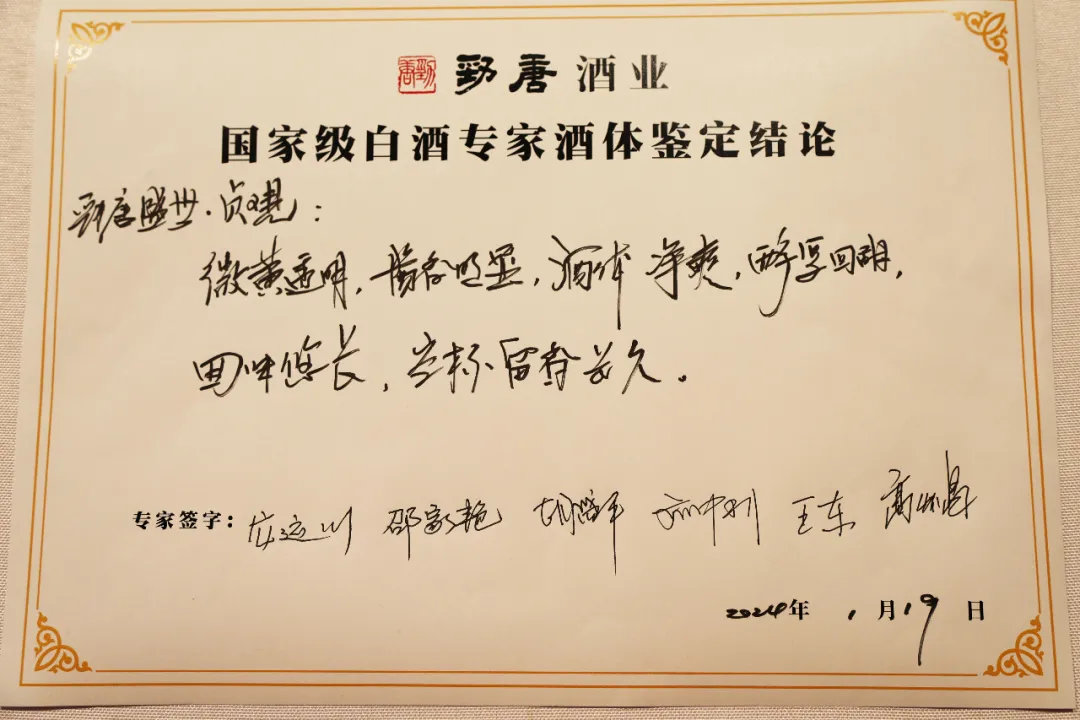 勁唐 勁唐 酒业
国家级白酒专家酒体鉴定结论
勁唐盛世·贞观:
微黄透明,酱香明显,酒体净爽,醇厚回甜,
回味悠长,空杯留香长久。
专家签字: 邵家艳 王东
2024年 1月19日